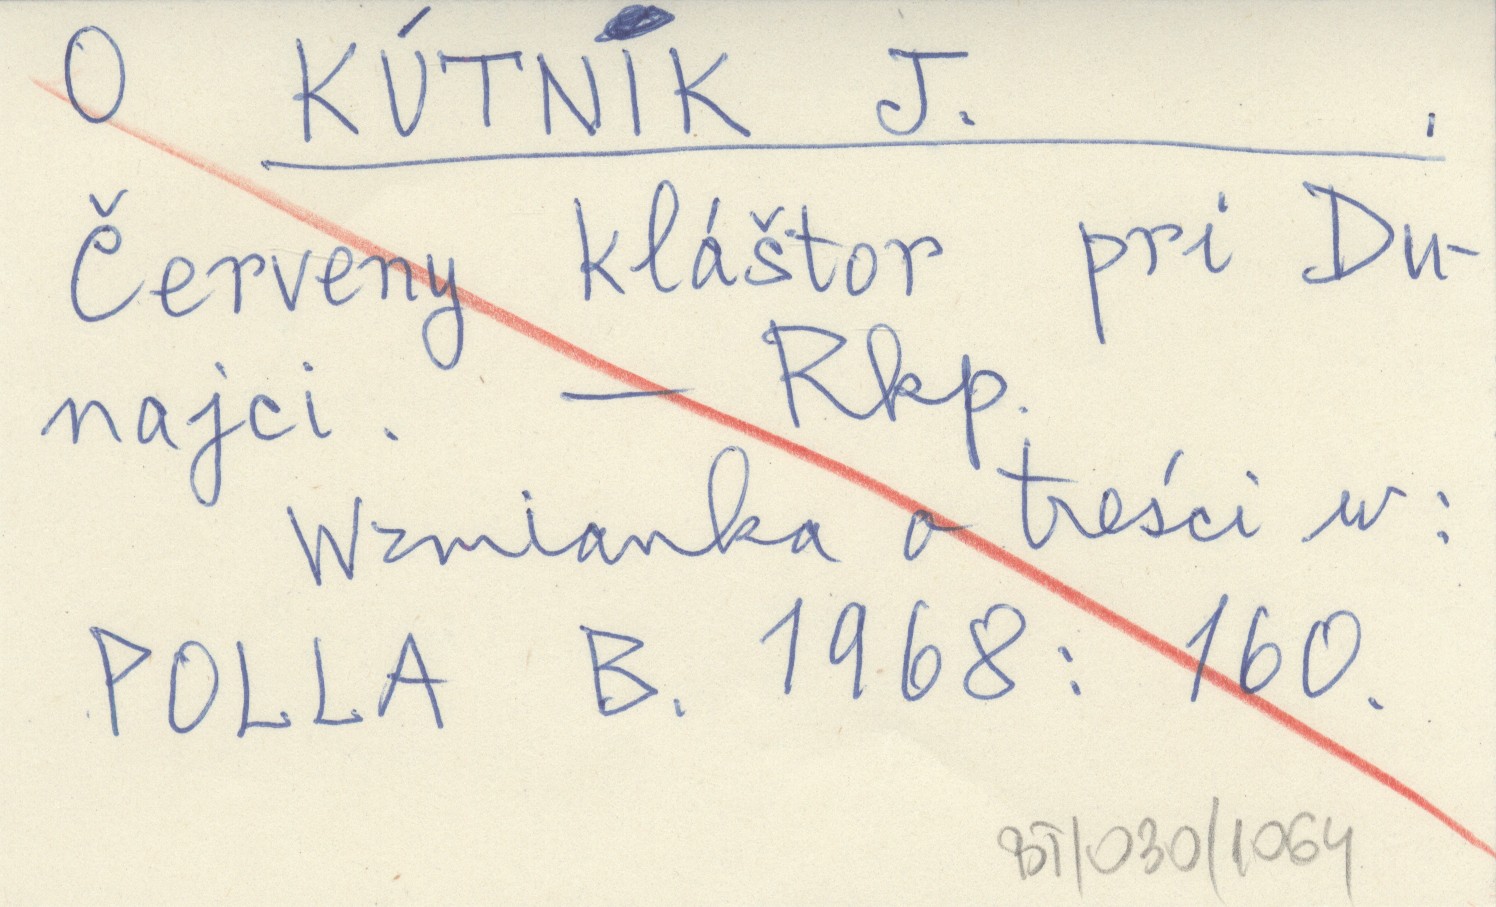 O KÚTNÍK J.
Červeny kláštor pri Du-
najci. — Rkp.
Wzmianka o treści w:
POLLA B. 1968: 160.
BT/030/1064